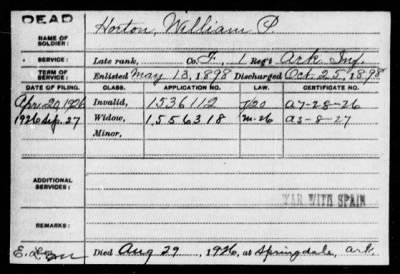 DEAD
NAME OF SOLDIER: Horton, William P.
SERVICE: Late rank, Co. F, 1 Reg't Ark. Inf.
TERM OF SERVICE: Enlisted May 13, 1898 Discharged Oct. 25, 1898
DATE OF FILING. CLASS. APPLICATION NO. LAW. CERTIFICATE NO.
Apr 29 1926 Invalid, 1536112 A7-28-26
1926 Sep. 27 Widow, 1556318 M-26 A3-8-27
Minor,
ADDITIONAL SERVICES:
WAR WITH SPAIN
REMARKS:
Died Aug 29, 1926, at Springdale, Ark.